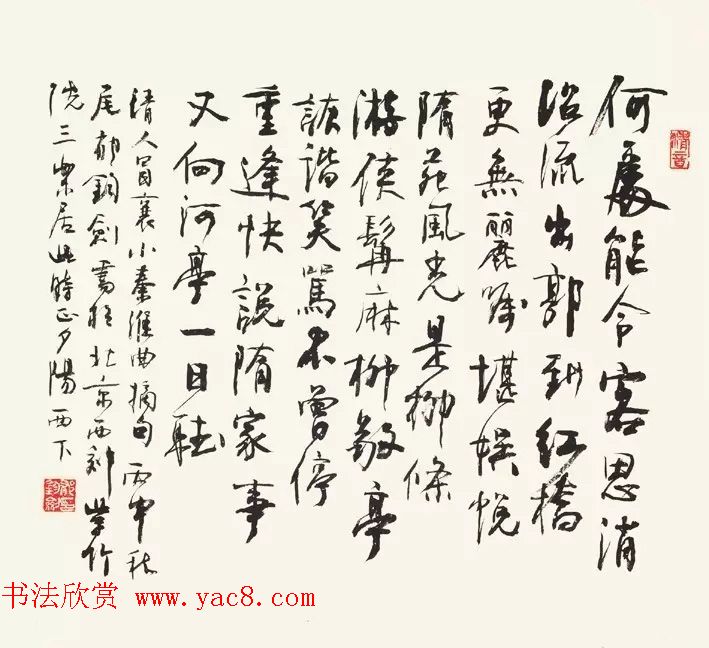 何處能令客思消
沿流出郭到紅橋
更無麗矚堪娛悅
隋苑風光是柳條
游俠髯麻柳敬亭
詼諧笑罵不曾停
重逢快說隋家事
又向河亭一日聽
清人冒襄小秦淮曲摘句 丙申秋
尾郁鈞劍書於北京西郊 學竹
院三樂居此時正夕陽西下
书法欣赏 www.yac8.com